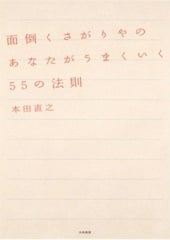 面倒くさがりやの
あなたがうまくいく
55の法則
本田直之
大和書房